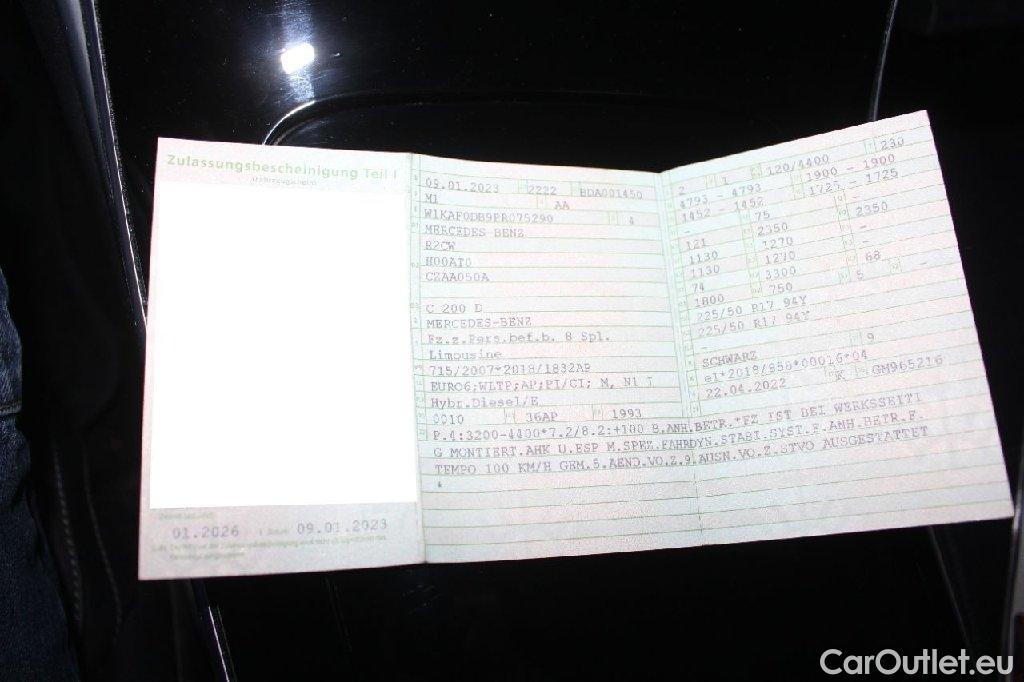 Zulassungsbescheinigung Teil I
(Fahrzeugschein)
01.2026
09.01.2023
09.01.2023 2222 BDA001450
M1 AA
W1KAF0DB9PR075290 4
MERCEDES-BENZ
R2CW
H00AT0
CZAA050A
C 200 D
MERCEDES-BENZ
Fz.z.Pers.bef.b. 8 Spl.
Limousine
715/2007*2018/1832AP
EURO6;WLTP;AP;PI/CI; M, N1 I
Hybr.Diesel/E
0010 36AP 1993
2 1 120/4400 230
4793 - 4793 1900 - 1900
1452 - 1452 1725 - 1725
- 75 -
121 2350 2350
1130 1270 -
1130 1270 -
74 3300 68
1800 750 5 -
225/50 R17 94Y
225/50 R17 94Y
-
SCHWARZ 9
e1*2018/858*00016*04
22.04.2022 K GM965216
P.4:3200-4400*7.2/8.2:+100 B.ANH.BETR.*FZ IST BEI WERKSSEITI
G MONTIERT.AHK U.ESP M.SPEZ.FAHRDYN.STABI.SYST.F.ANH.BETR.F.
TEMPO 100 KM/H GEM.5.AEND.VO.Z.9.AUSN.VO.Z.STVO AUSGESTATTET
*
CarOutlet.eu